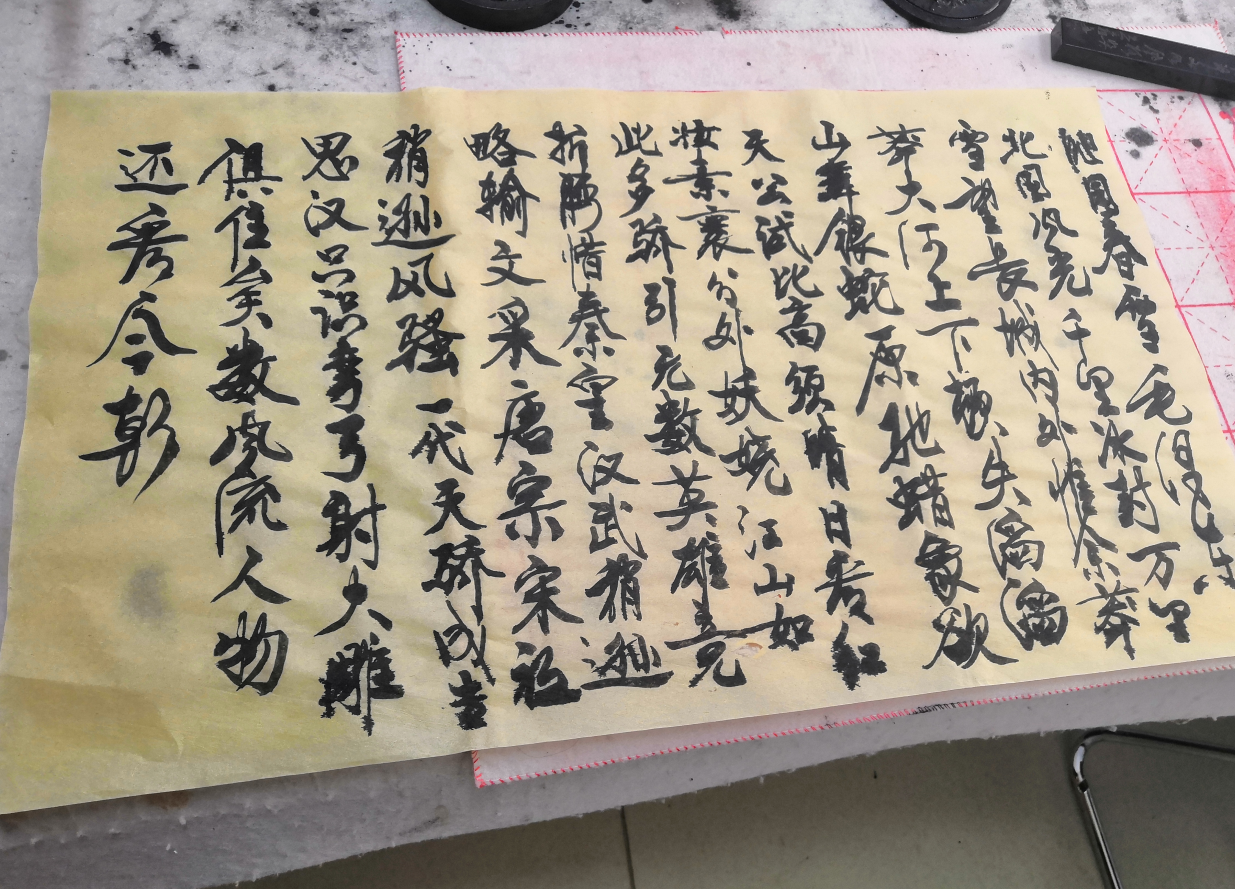 沁園春雪 毛泽东
北国风光千里冰封万里
雪望长城内外惟余莽
莽大河上下顿失滔滔
山舞银蛇原驰蜡象欲
天公试比高须晴日看红
妆素裹分外妖娆江山如
此多骄引无数英雄竞
折腰惜秦皇汉武稍逊
略输文采唐宗宋祖
稍逊风骚一代天骄成吉
思汉只识弯弓射大雕
俱往矣数风流人物
还看今朝